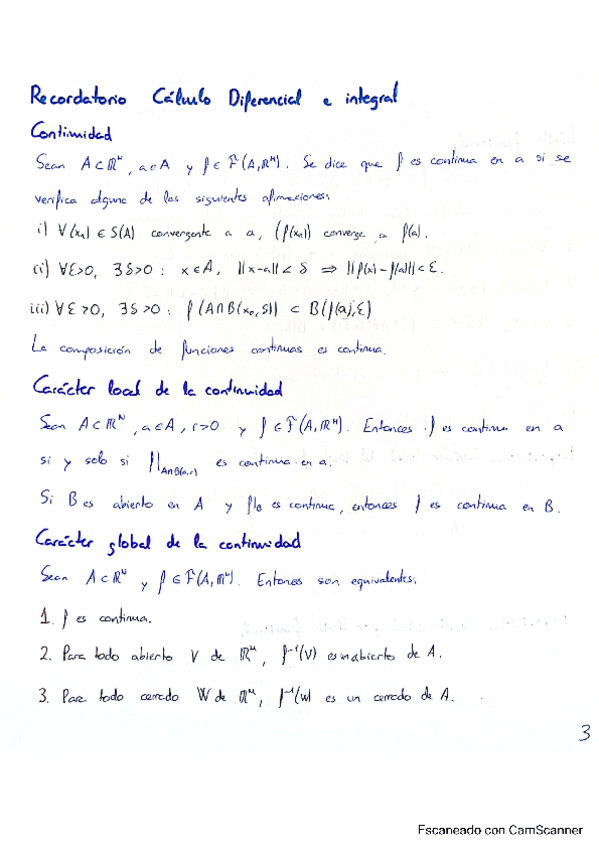 Recordatorio Cálculo Diferencial e integral
Continuidad
Sean A⊂ℝᴺ, a∈A y f∈F(A,ℝᴹ). Se dice que f es continua en a si se
verifica alguna de las siguientes afirmaciones:
i) ∀(xₙ)∈S(A) convergente a a, (f(xₙ)) converge a f(a).
ii) ∀ε>0, ∃δ>0 : x∈A, ||x-a||<δ ⇒ ||f(x)-f(a)||<ε.
iii) ∀ε>0, ∃δ>0 : f(A∩B(x₀,δ)) ⊂ B(f(a),ε)
La composición de funciones continuas es continua.
Carácter local de la continuidad
Sean A⊂ℝᴺ, a∈A, r>0 y f∈F(A,ℝᴹ). Entonces f es continua en a
si y solo si f|A∩B(a,r) es continua en a.
Si B es abierto en A y f|B es continua, entonces f es continua en B.
Carácter global de la continuidad
Sean A⊂ℝᴺ y f∈F(A,ℝᴹ). Entonces son equivalentes:
1. f es continua.
2. Para todo abierto V de ℝᴹ, f⁻¹(V) es un abierto de A.
3. Para todo cerrado W de ℝᴹ, f⁻¹(W) es un cerrado de A.
3
Escaneado con CamScanner